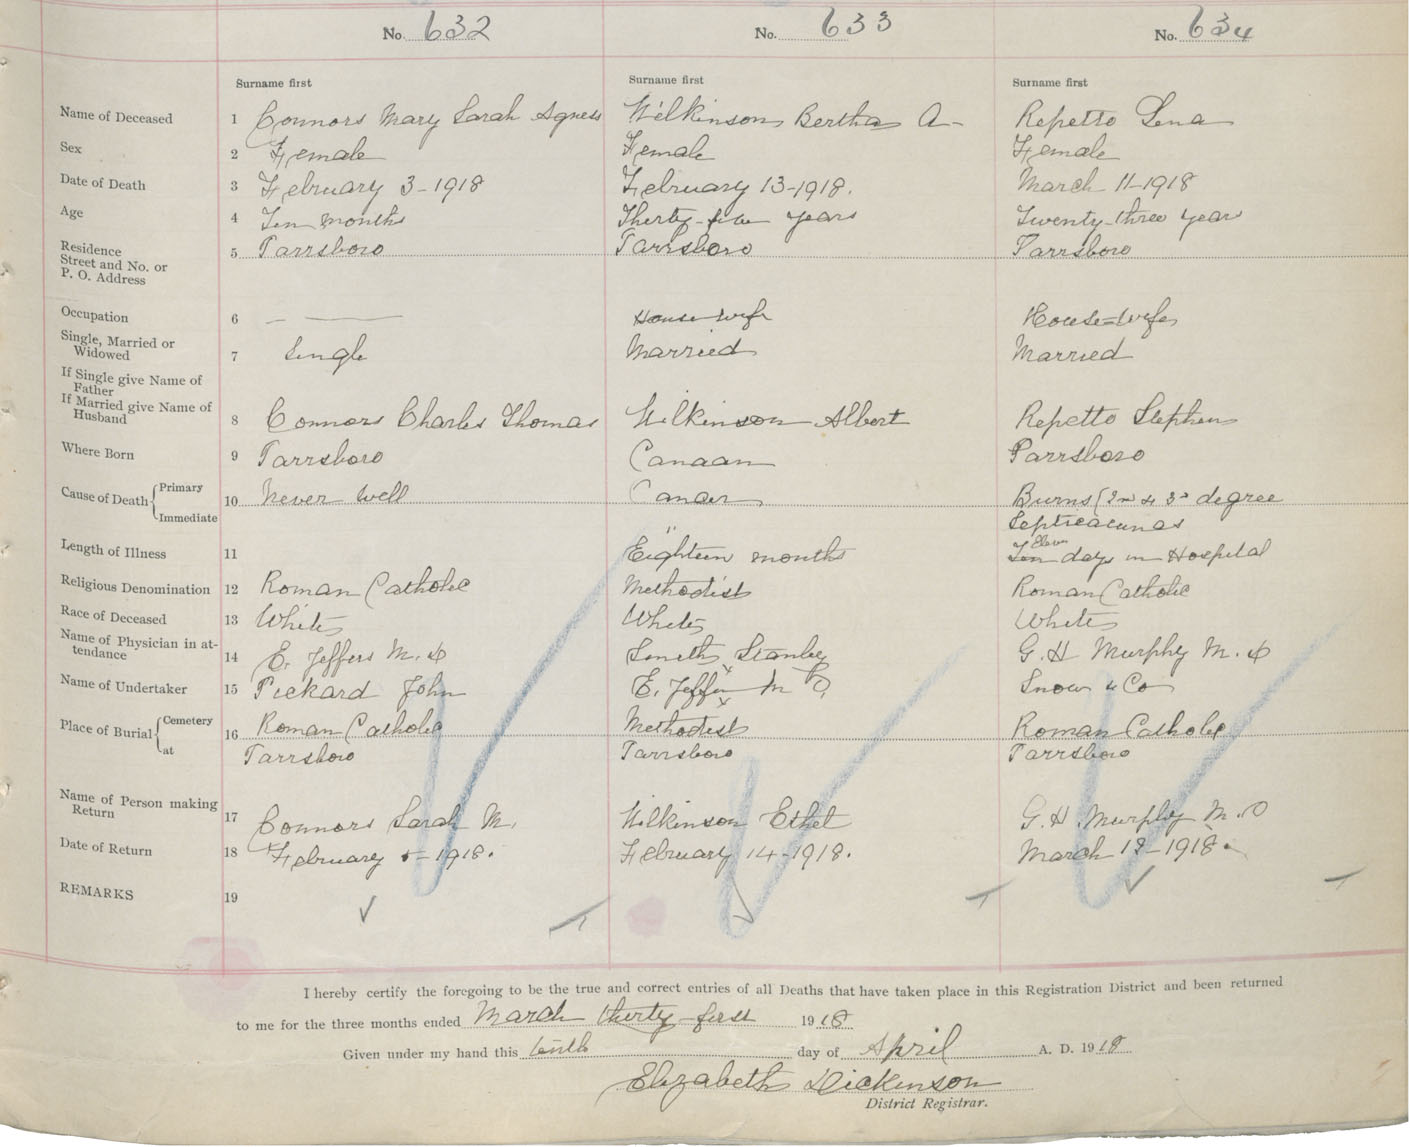 No. 632 No. 633 No. 634
Surname first Surname first Surname first
Name of Deceased 1 Connors Mary Sarah Agness Wilkinson Bertha A- Repetto Lena
Sex 2 Female Female Female
Date of Death 3 February 3-1918 February 13-1918. March 11-1918
Age 4 Ten months Thirty-five years Twenty-three years
Residence
Street and No. or
P. O. Address 5 Parrsboro Parrsboro Parrsboro
Occupation 6 — —— House wife House=wife
Single, Married or
Widowed 7 Single Married Married
If Single give Name of
Father
If Married give Name of
Husband 8 Connors Charles Thomas Wilkinson Albert Repetto Stephen
Where Born 9 Parrsboro Canaan Parrsboro
Cause of Death { Primary 10 Never well Cancer Burns (2nd & 3d degree
Immediate " Septicaemia
Length of Illness 11 Eighteen months Ten Eleven days in Hospital
Religious Denomination 12 Roman Catholic Methodist Roman Catholic
Race of Deceased 13 White White White
Name of Physician in at-
tendance 14 E. Jeffers M. D Smith Stanley G. H Murphy M. D
Name of Undertaker 15 Pickard John E. Jeffers M D, Snow & Co
Place of Burial { Cemetery 16 Roman Catholic Methodist Roman Catholic
at Parrsboro Parrsboro Parrsboro
Name of Person making
Return 17 Connors Sarah M. Wilkinson Ethel G. H. Murphy M. D
Date of Return 18 February 5-1918. February 14-1918. March 12-1918.
REMARKS 19
I hereby certify the foregoing to be the true and correct entries of all Deaths that have taken place in this Registration District and been returned
to me for the three months ended March thirty-first 1918
Given under my hand this tenth day of April A. D. 1918
Elizabeth Dickinson
District Registrar.